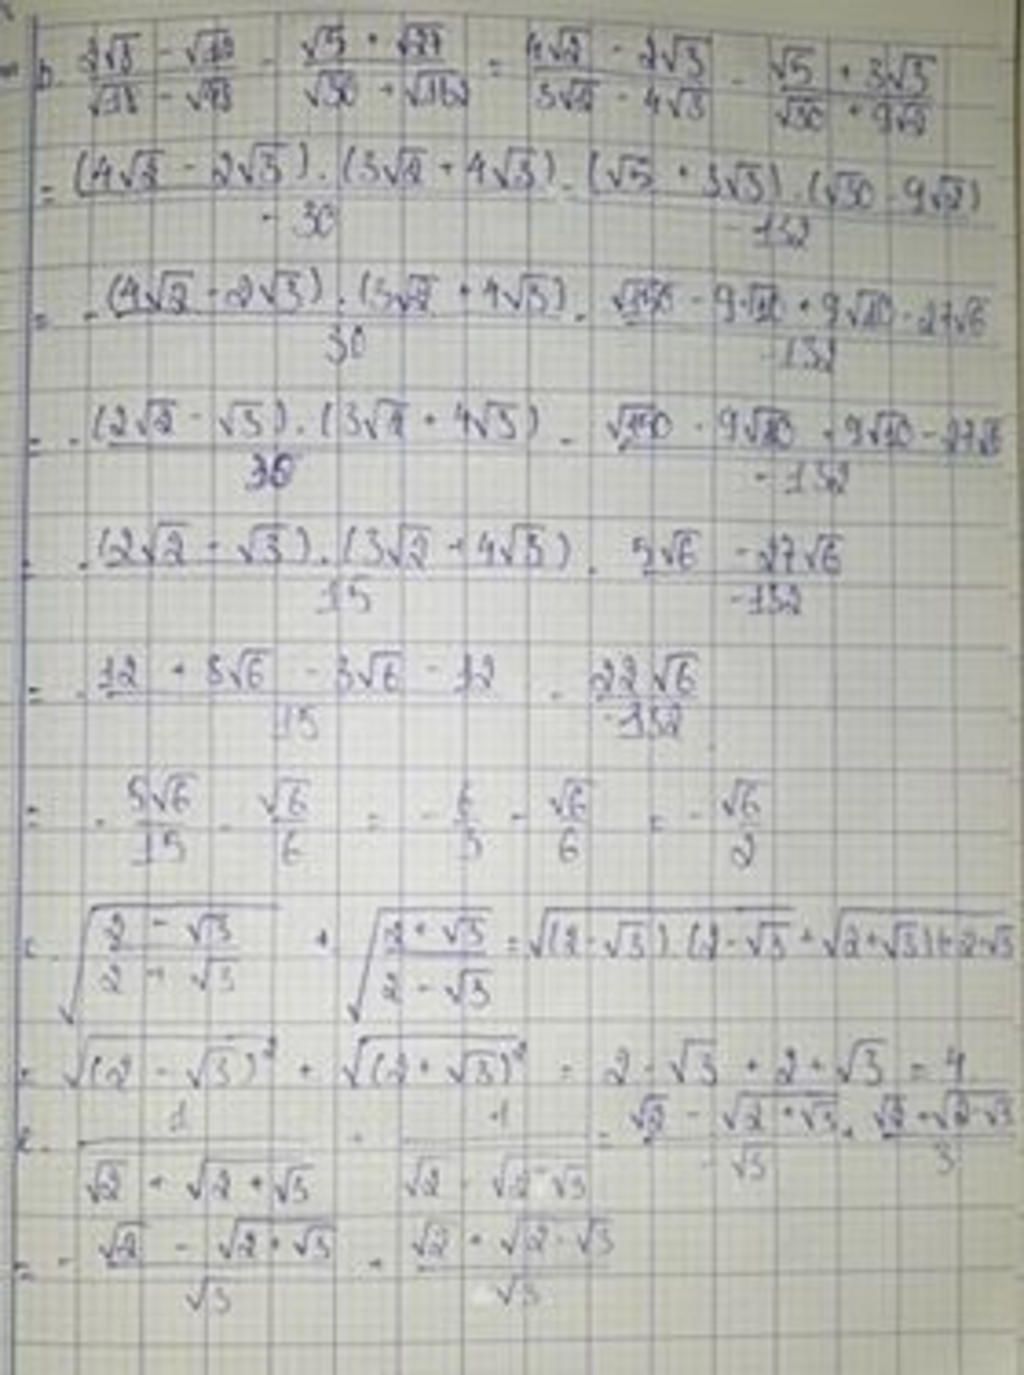 b. (2√8 - √12)/(√18 - √48) - (√5 + √27)/(√30 + √162) = (4√2 - 2√3)/(3√2 - 4√3) - (√5 + 3√3)/(√30 + 9√2)
= (4√2 - 2√3).(3√2 + 4√3)/-30 - (√5 + 3√3).(√30 - 9√2)/-132
= - (4√2 - 2√3).(3√2 + 4√3)/30 - (√150 - 9√10 + 9√10 - 27√6)/-132
= - (2√2 - √3).(3√2 + 4√3)/30 - (√150 - 9√10 + 9√10 - 27√6)/-132
- (2√2 - √3).(3√2 + 4√3)/15 - (5√6 - 27√6)/-132
= - (12 + 8√6 - 3√6 - 12)/15 - 22√6/-132
= - 5√6/15 - √6/6 = - 6/3 - √6/6 = - √6/2
c. √((2 - √3)/(2 + √3)) + √((2 + √3)/(2 - √3)) = √(2 - √3).(2 - √3) + √(2 + √3)(2+√3
= √(2 - √3)² + √(2 + √3)² = 2 - √3 + 2 + √3 = 4
1/(√2 + √2 + √3) + 1/(√2 - √2 - √3) = (√2 - √2 + √3)/-√3 + (√2 + √2 - √3)/3
= - (√2 - √2 + √3)/√3 + (√2 + √2 - √3)/√3